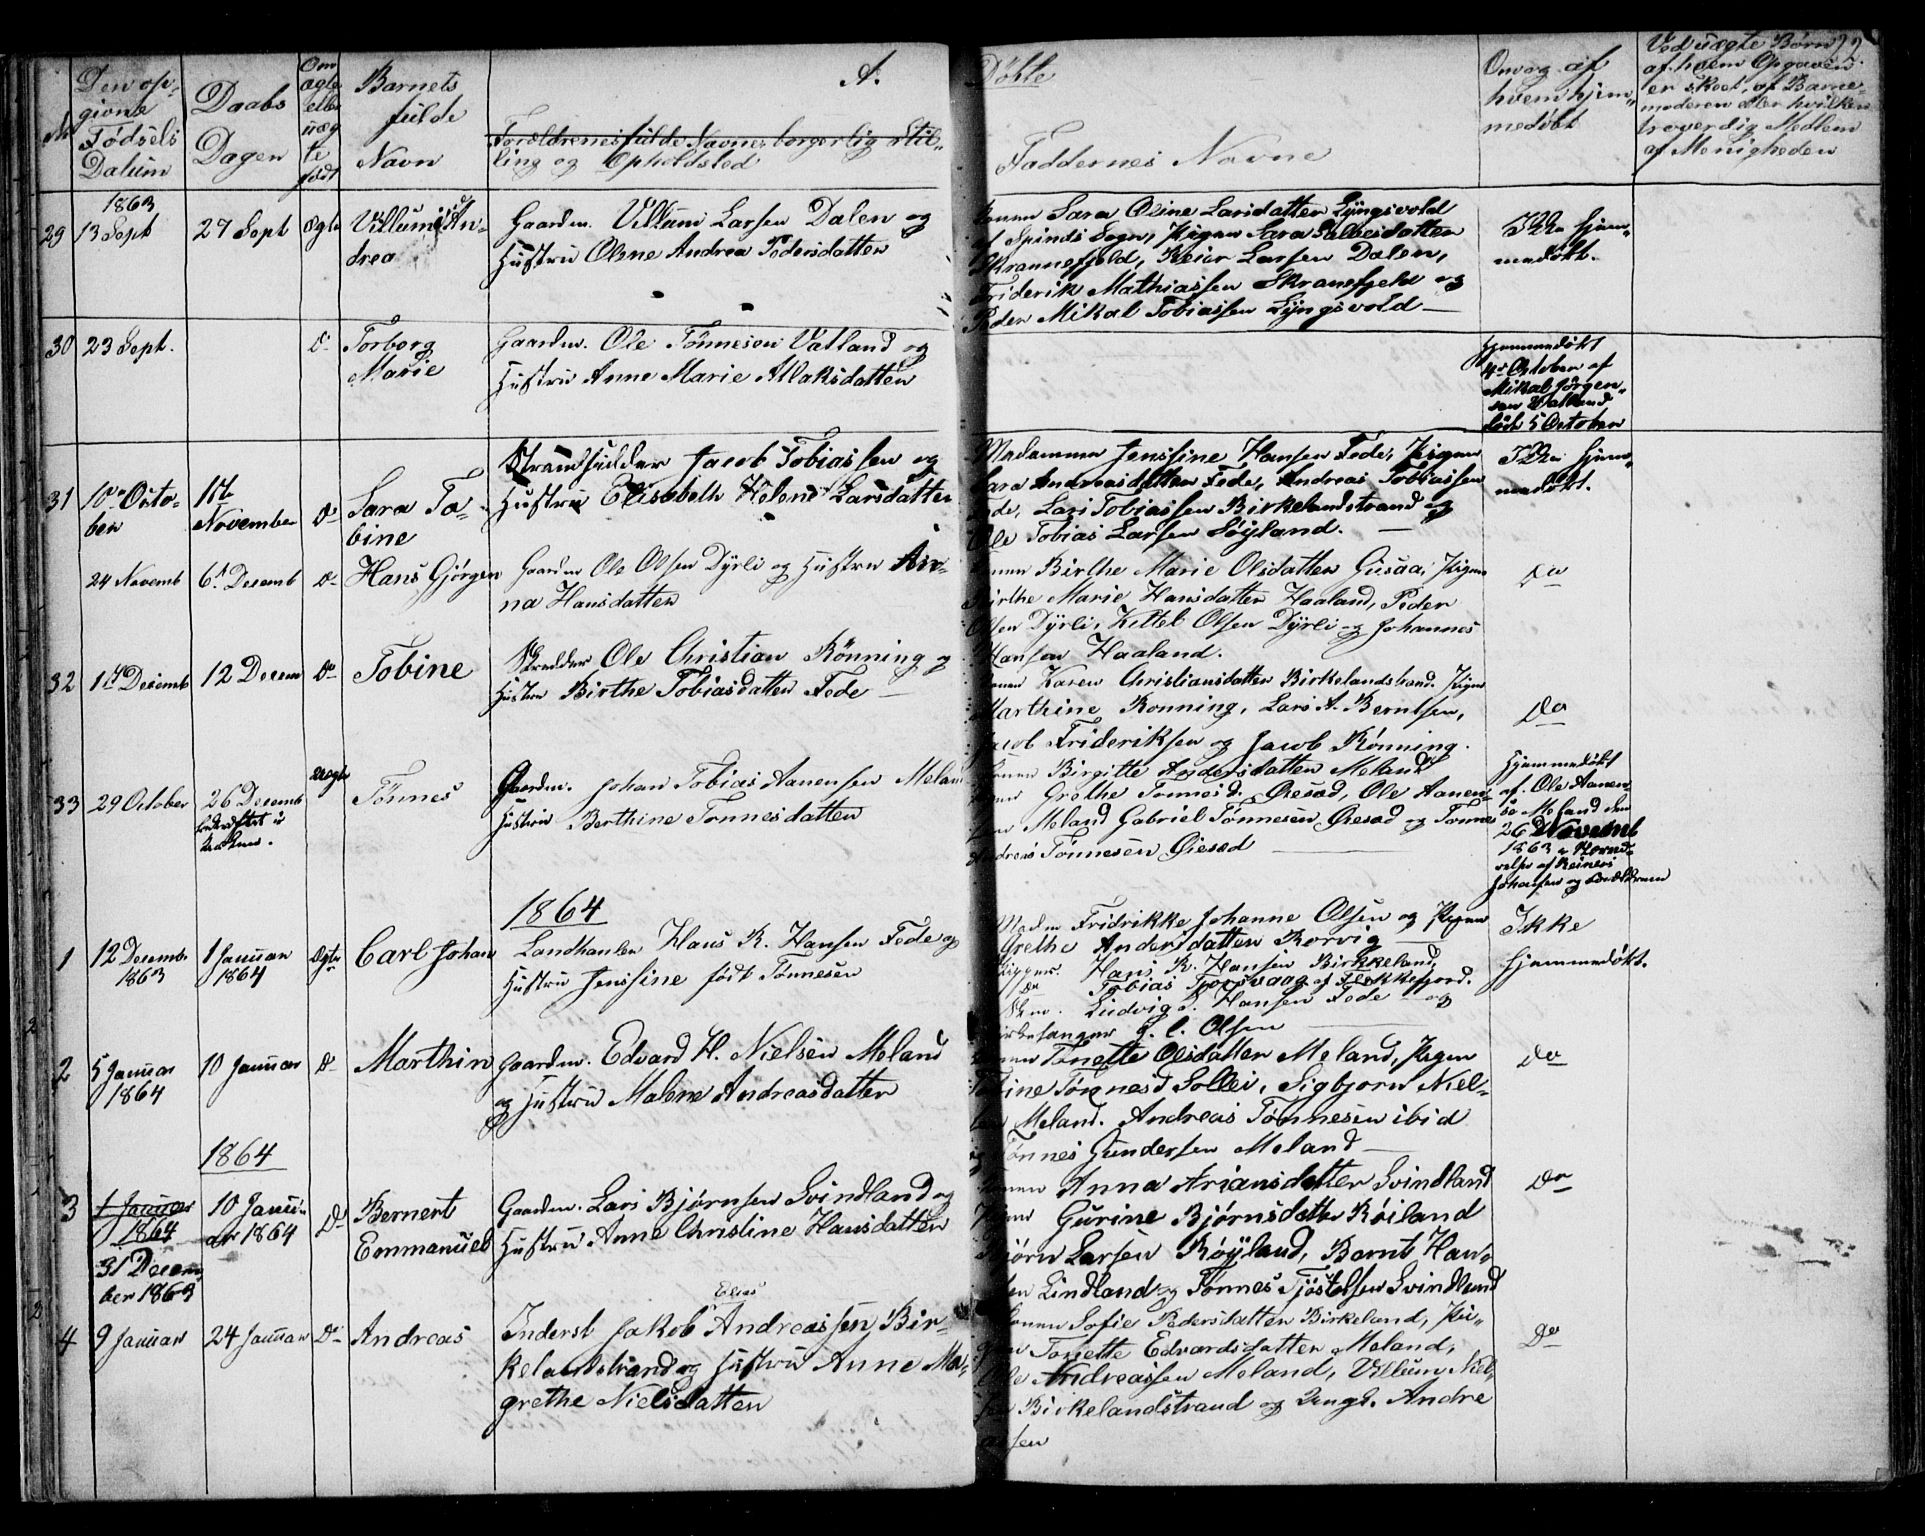 A. Døbte
22
No
Den op-
givne
Fødsels
Datum
Daabs
Dagen
Om
ægte
eller
uæg
te
født
Barnets
fulde
Navn
Forældrenes fulde Navne borgerlig Stil-
ling og Opholdsted
Faddernes Navne
Om og af
hvem hjem-
medøbt
Ved uægte Børn
af hvem Opgaven
er skeet, af Barne-
moderen eller hvilken
troverdig Medlem
af Menigheden
1863
29 13 Sept 27 Sept Ægte Villumine An-
drea
Gaardm. Villum Larsen Dalen og
Hustru Olene Andrea Pedersdatten
Konen Sara Oline Larsdatten Lyngsvold
af Spinds Sogn, Pigen Sara Salvesdatten
Skrannefjeld, Reier Larsen Dalen,
Friderik Mathiassen Skranefjeld og
Peder Mikal Tobiassen Lyngsvold
Ikke hjem-
medøbt.
30 23 Sept. do Torborg
Marie
Gaardm. Ole Tønnesen Vatland og
Hustru Anne Marie Atlaksdatten
Hjemmedøbt
4de October af
Mikal Jørgen-
sen Vatland
død 5 October
31 10de Octo-
ber
1ste
November
do Sara To-
bine
Strandsidder Jacob Tobiassen og
Hustru Elisabeth Helene Larsdatten
Madammen Jenssine Hansen Fede, Pigen
Sara Andreasdatten Fede, Andreas Tobiassen
Fede, Lars Tobiassen Birkelandstrand og
Ole Tobias Larsen Søyland.
Ikke hjem-
medøbt.
24 Novemb 6te Decemb do Hans Gjørgen
Gaardm Ole Olsen Dyrli og Hustru An-
na Hansdatten
Konen Birthe Marie Olsdatten Gusaa, Pigen
Birthe Marie Hansdatten Haaland, Peder
Olsen Dyrli, Kittel Olsen Dyrli og Johannes
Hansen Haaland.
do
32 1ste Decemb 12 Decem do Tobine
Skredder Ole Christian Rönning og
Hustru Birthe Tobiasdatten Fede
Konen Karen Christiansdatten Birkelandstrand. Pigen
Marthine Ronning, Lars A. Berntsen,
Jacob Frideriksen og Jacob Rönning.
do
33 29 October 26 Decemb
bekræftet i
Kirken.
Uægte Tönnes
Gaardm. Johan Tobias Aanensen Meland
Hustru Berthine Tonnesdatten
Konen Birgitte Andersdatten Meland
Pigen Grethe Tonnesd. Øiesad, Ole Aanen-
sen Meland Gabriel Tönnesen Øiesad og Tonnes
Andreas Tönnesen Øiesad
Hjemmedøbt
af Ole Aanen-
se Meland den
26 Novemb
1863 i Nærvæ-
relse af Reiners
Johansen og Forældrene
1864
1 12 Decemb
1863
1 Januar
1864
Ægte Carl Johan
Landhanlen Hans R. Hansen Fede og
Hustru Jenssine født Tønnesen
Madm Fridrikke Johanne Olsen og Pigen
Grethe Andersdatten Rorvig
Hans R. Hansen Birkkeland,
do Tobias Tjorsvaag af Flekkefjord.
Ludvig J. Hansen Fede og
Kirkesanger J. C. Olsen
Ikke
hjemmedøbt.
2 5 Januar
1864
10 Januar do Marthin
Gaardm. Edvard H. Nielsen Meland
og Hustru Malene Andreasdatten
Konen Tonette Olsdatten Meland, Pigen
Tobine Tønnesd Sollei, Sigbjorn Niel-
sen Meland. Andreas Tonnesen ibid
og Tønnes Gundersen Meland
do
1864
3 1 Januar
1864
31 Decem-
ber 1863
10 Janu-
ar 1864
do Bernert
Emmanuel
Gaardm. Lars Bjørnsen Svindland og
Hustru Anne Christine Hansdatten
Konen Anna Ariansdatter Svindland
Pigen Gurine Bjørnsdatter Röiland
Bjørn Larsen Røyland, Bernt Han-
sen Lindland og Tønnes Tjöstolsen Svindland
do
4 9 Januar 24 Januar do Andreas
Elias
Inderst Jakob Andreassen Bir-
kelandstrand og Hustru Anne Ma-
grethe Nielsdatten
Konen Sofie Pedersdatten Birkeland, Pi-
gen Tonette Edvardsdatten Meland,
Ole Andreassen Meland, Villum Niel-
sen Birkelandstrand og Ungk. Andre
assen
do